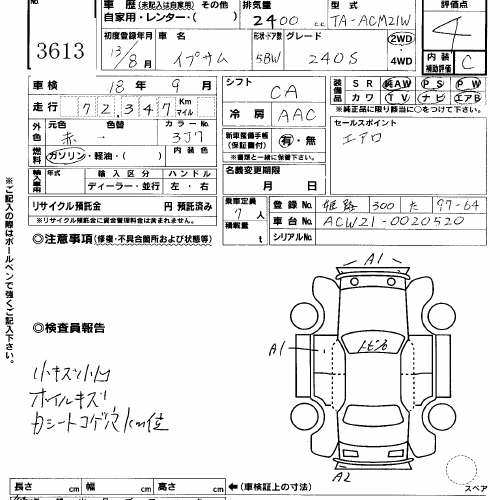 車歴 (未記入は自家用) その他
自家用・レンタ・( )
排気量 2400 c.c.
型式 TA-ACM21W
評価点 4
3613
初度登録年月 13/8月
車名 イプサム
形状・ドア数 5BW
グレード 240S
2WD・4WD
内装補助評価 C
車検 18年 9月
シフト CA
装備品 SR 純AW PS PW
カワ TV ナビ エアB
※純正品に限り該当に○をつけて下さい。
走行 72,347 Km マイル
冷房 AAC
外色 元色 色替 カラーNo.
赤・ 3J7
セールスポイント
エアロ
燃料 ガソリン・軽油・( ) 内装色
新車整備手帳(保証書付) 有・無
※書類と一緒に保管下さい。
輸入車用 年式 輸入区分 ハンドル
ディーラー・並行 左・右
名義変更期限
月 日
リサイクル預託金 円 預託済み
※リサイクル預託金に資金管理料金は含まれません。
乗車定員 7人
積載量 t
登録No. 姫路 300 た 97-64
車台No. ACW21-0020520
シリアルNo.
◎注意事項(修復・不具合箇所および状態等)
※ご記入の際はボールペンで強くご記入下さい。
A1
A1
A2
◎検査員報告
小キズ小凹
ホイルキズ
カシートコゲ穴1cm位
スペア
長さ cm 幅 cm 高さ cm ←(車検証上の寸法)